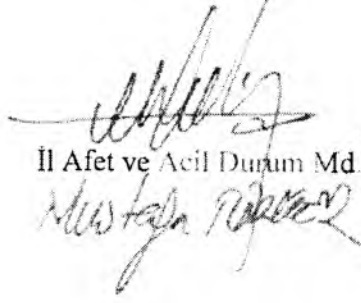 İl Afet ve Acil Durum Md.
Mustafa